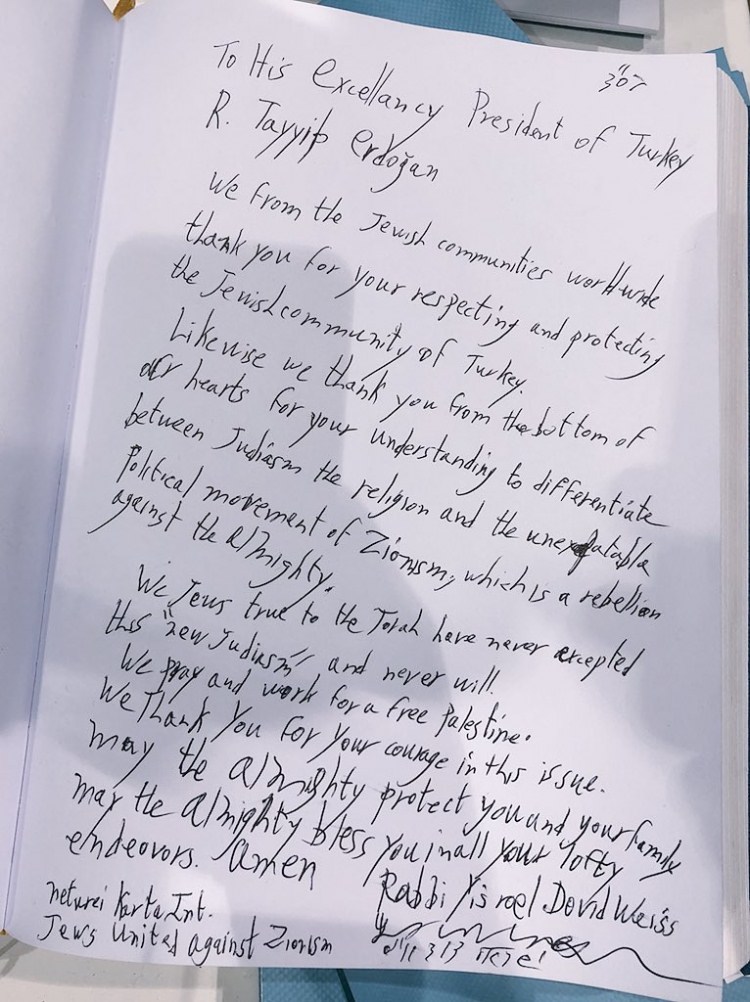 בס"ד
To His Excellancy President of Turkey
R. Tayyip Erdoğan
We from the Jewish communities worldwide
thank you for your respecting and protecting
the Jewish community of Turkey.
Likewise we thank you from the bottom of
our hearts for your understanding to differentiate
between Judiasm the religion and the
Political movement of Zionism, which is a rebellion
against the almighty.
We Jews true to the Torah have never accepted
this "new Judiasm" and never will.
We pray and work for a free Palestine.
We Thank You for your courage in this issue.
may the almighty protect you and your family
may the almighty bless you in all your lofty
endeavors. amen
Rabbi Yisroel Dovid Weiss
neturei Karta Int.
Jews United against Zionism